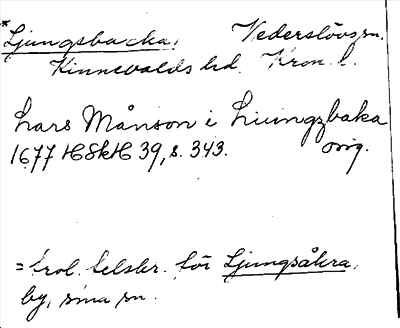 *Ljungsbacka, Vederslövs sn.
Kinnevalds hd. Kron. l.
Lars Månson i Liuingzbaka
1677 HSkH 39, s. 343. orig.
= trol. felskr. för Ljungsåkra,
by, sma sn.